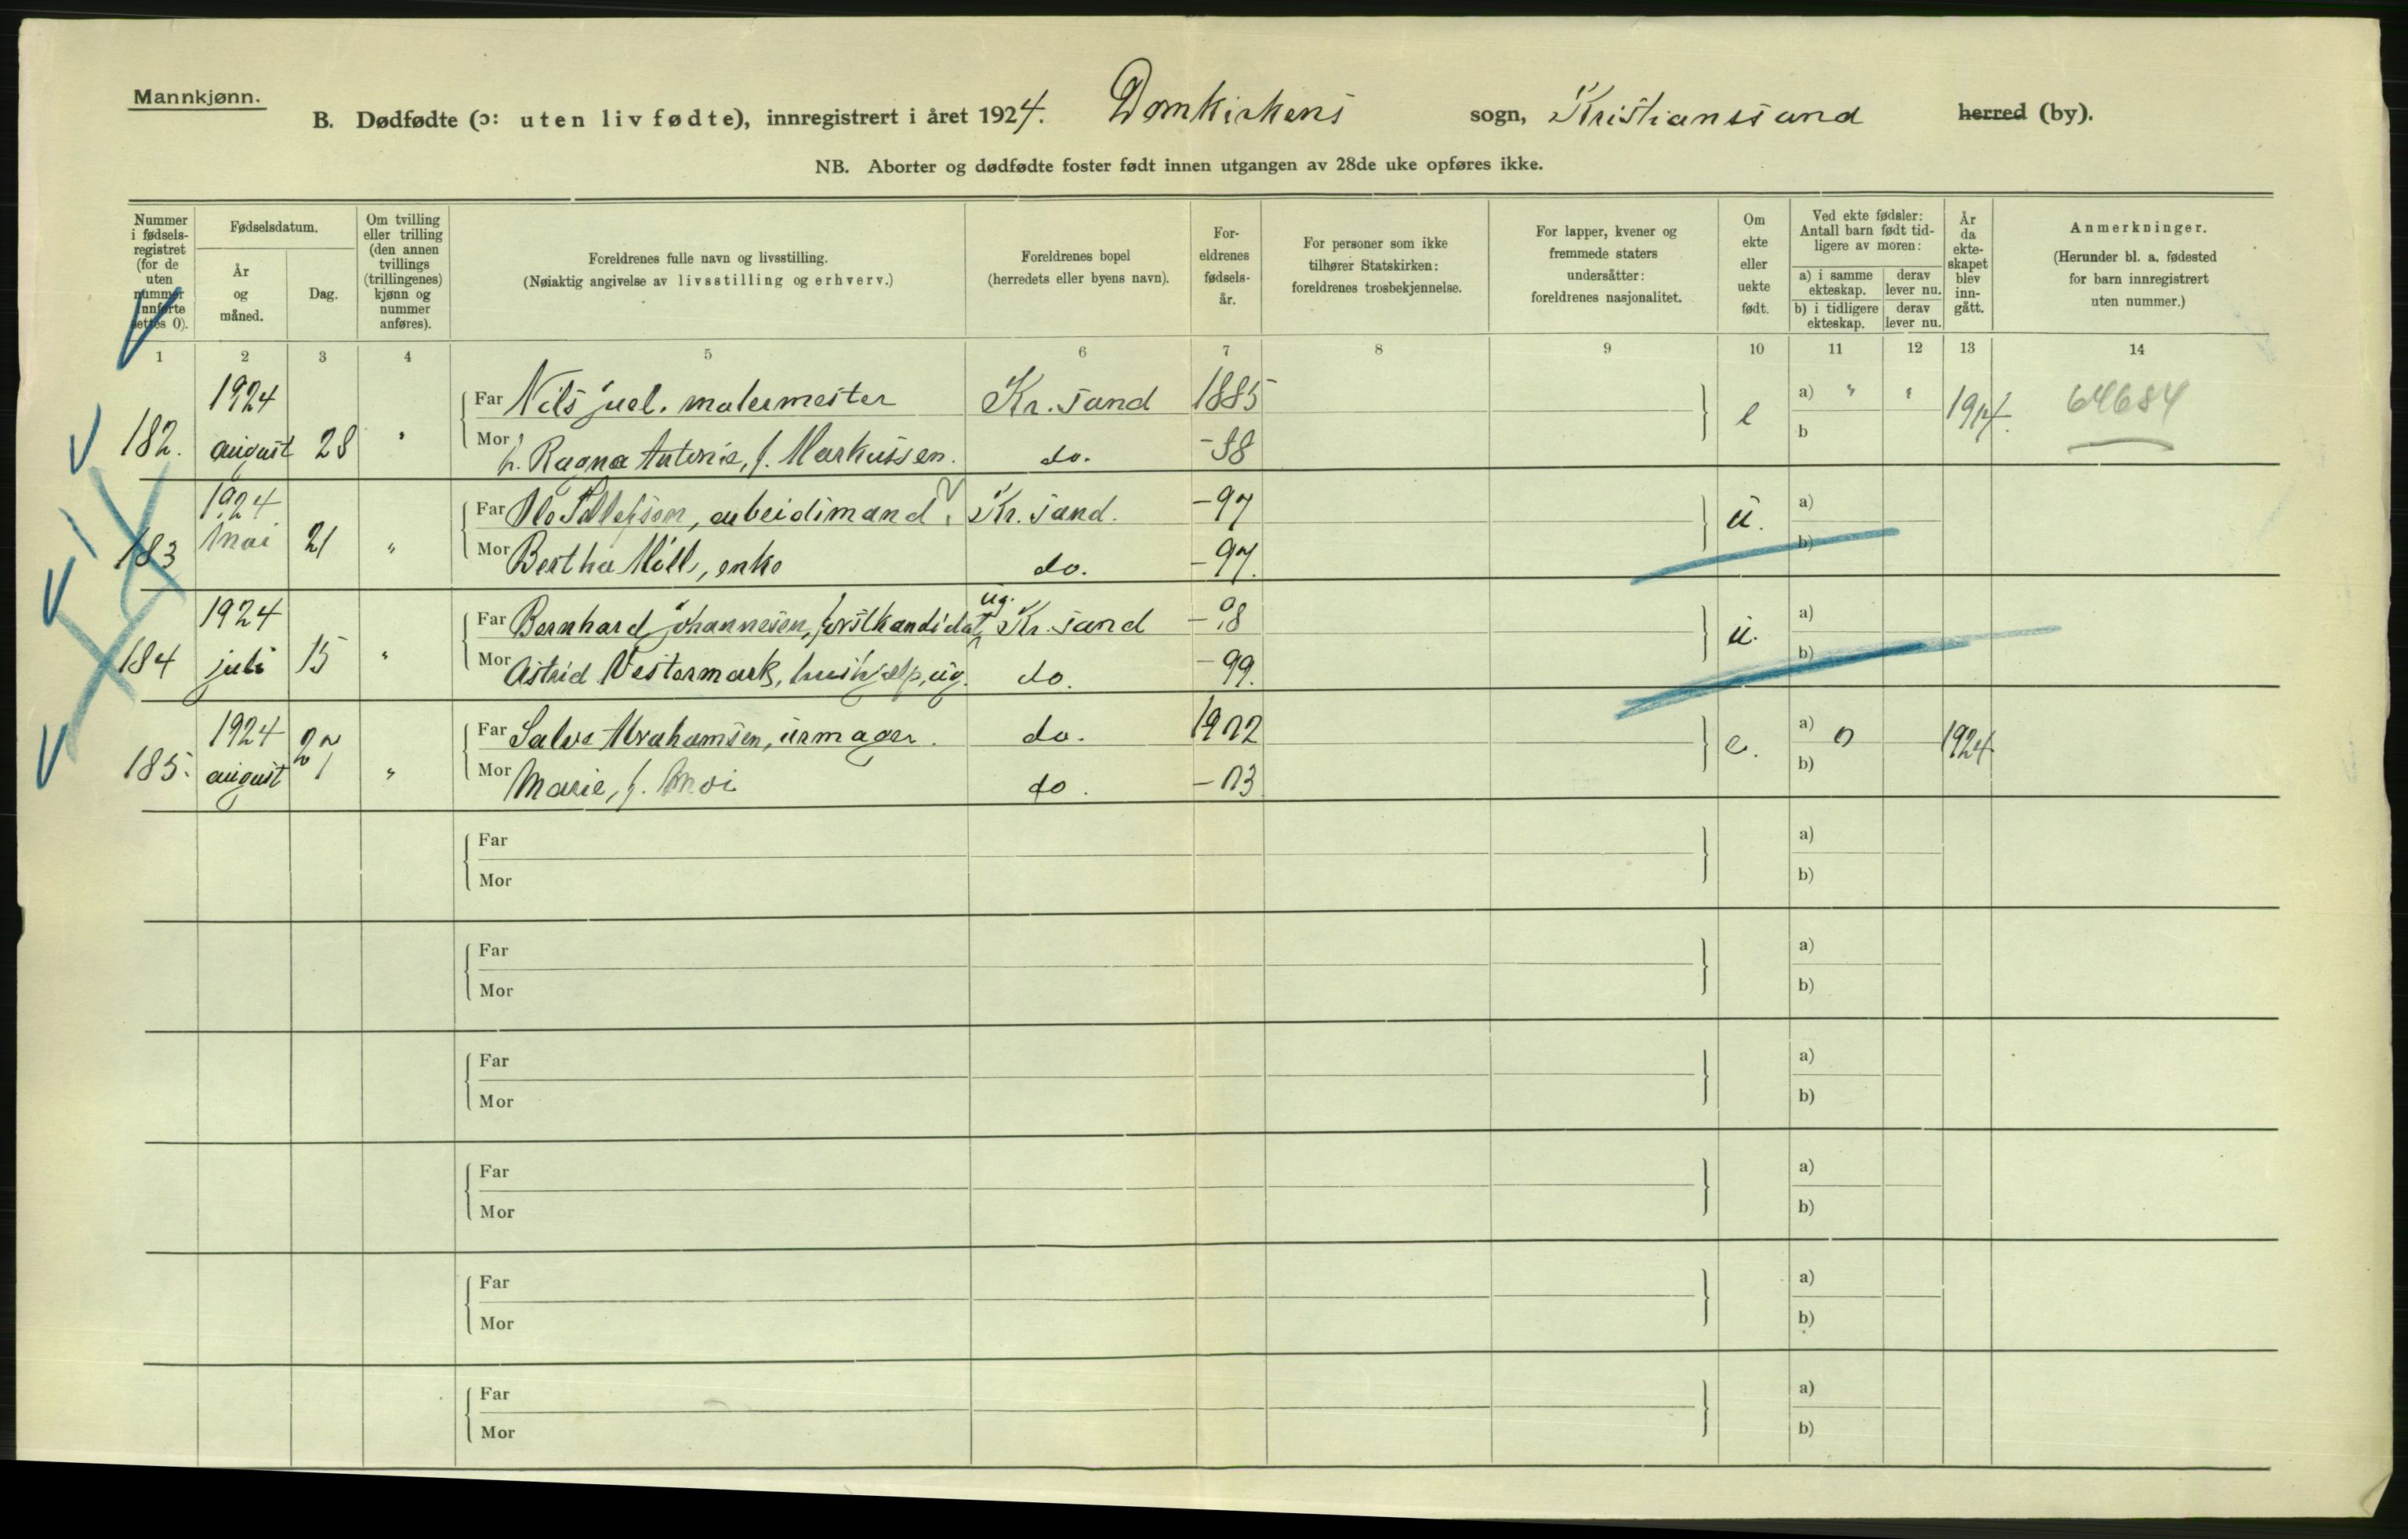 Mannkjønn.
B. Dødfødte (ɔ: uten liv fødte), innregistrert i året 1924. Domkirkens sogn, Kristianssand herred (by).
NB. Aborter og dødfødte foster født innen utgangen av 28de uke opføres ikke.
Nummer i fødsels-registret (for de uten nummer innførte settes 0).
Fødselsdatum.
År og måned.
Dag.
Om tvilling eller trilling (den annen tvillings (trillingenes) kjønn og nummer anføres).
Foreldrenes fulle navn og livsstilling.
(Nøiaktig angivelse av livsstilling og erhverv.)
Foreldrenes bopel
(herredets eller byens navn).
For-eldrenes fødsels-år.
For personer som ikke tilhører Statskirken: foreldrenes trosbekjennelse.
For lapper, kvener og fremmede staters undersåtter: foreldrenes nasjonalitet.
Om ekte eller uekte født.
Ved ekte fødsler: Antall barn født tid-ligere av moren:
a) i samme ekteskap. derav lever nu.
b) i tidligere ekteskap. derav lever nu.
År da ekte-skapet blev inn-gått.
Anmerkninger.
(Herunder bl. a. fødested for barn innregistrert uten nummer.)
1 2 3 4 5 6 7 8 9 10 11 12 13 14
1924 Far Nils Juel. malermester Kr. sand 1885 a) " " 64684
182. august 28 " Mor h. Ragna Antonie, f. Markussen. do. -88 e b
1924 Far Olo Tellefsen, arbeidsmand, Kr. sand. -97 a)
183 Mai 21 " Mor Bertha Moll, enke do. -97. u. b)
1924 Far Bernhard Johannesen, forstkandidat, ug. Kr. sand a)
184 juli 15 " Mor Astrid Vestermark, hushjælp, ug. do. -99. u. b)
1924 Far Salve Abrahamsen, urmager. do. 1902 a) 0 1924
185. august Mor Marie, f. Moi do. -03 e. b)
Far a)
Mor b)
Far a)
Mor b)
Far a)
Mor b)
Far a)
Mor b)
Far a)
Mor b)
Far a)
Mor b)